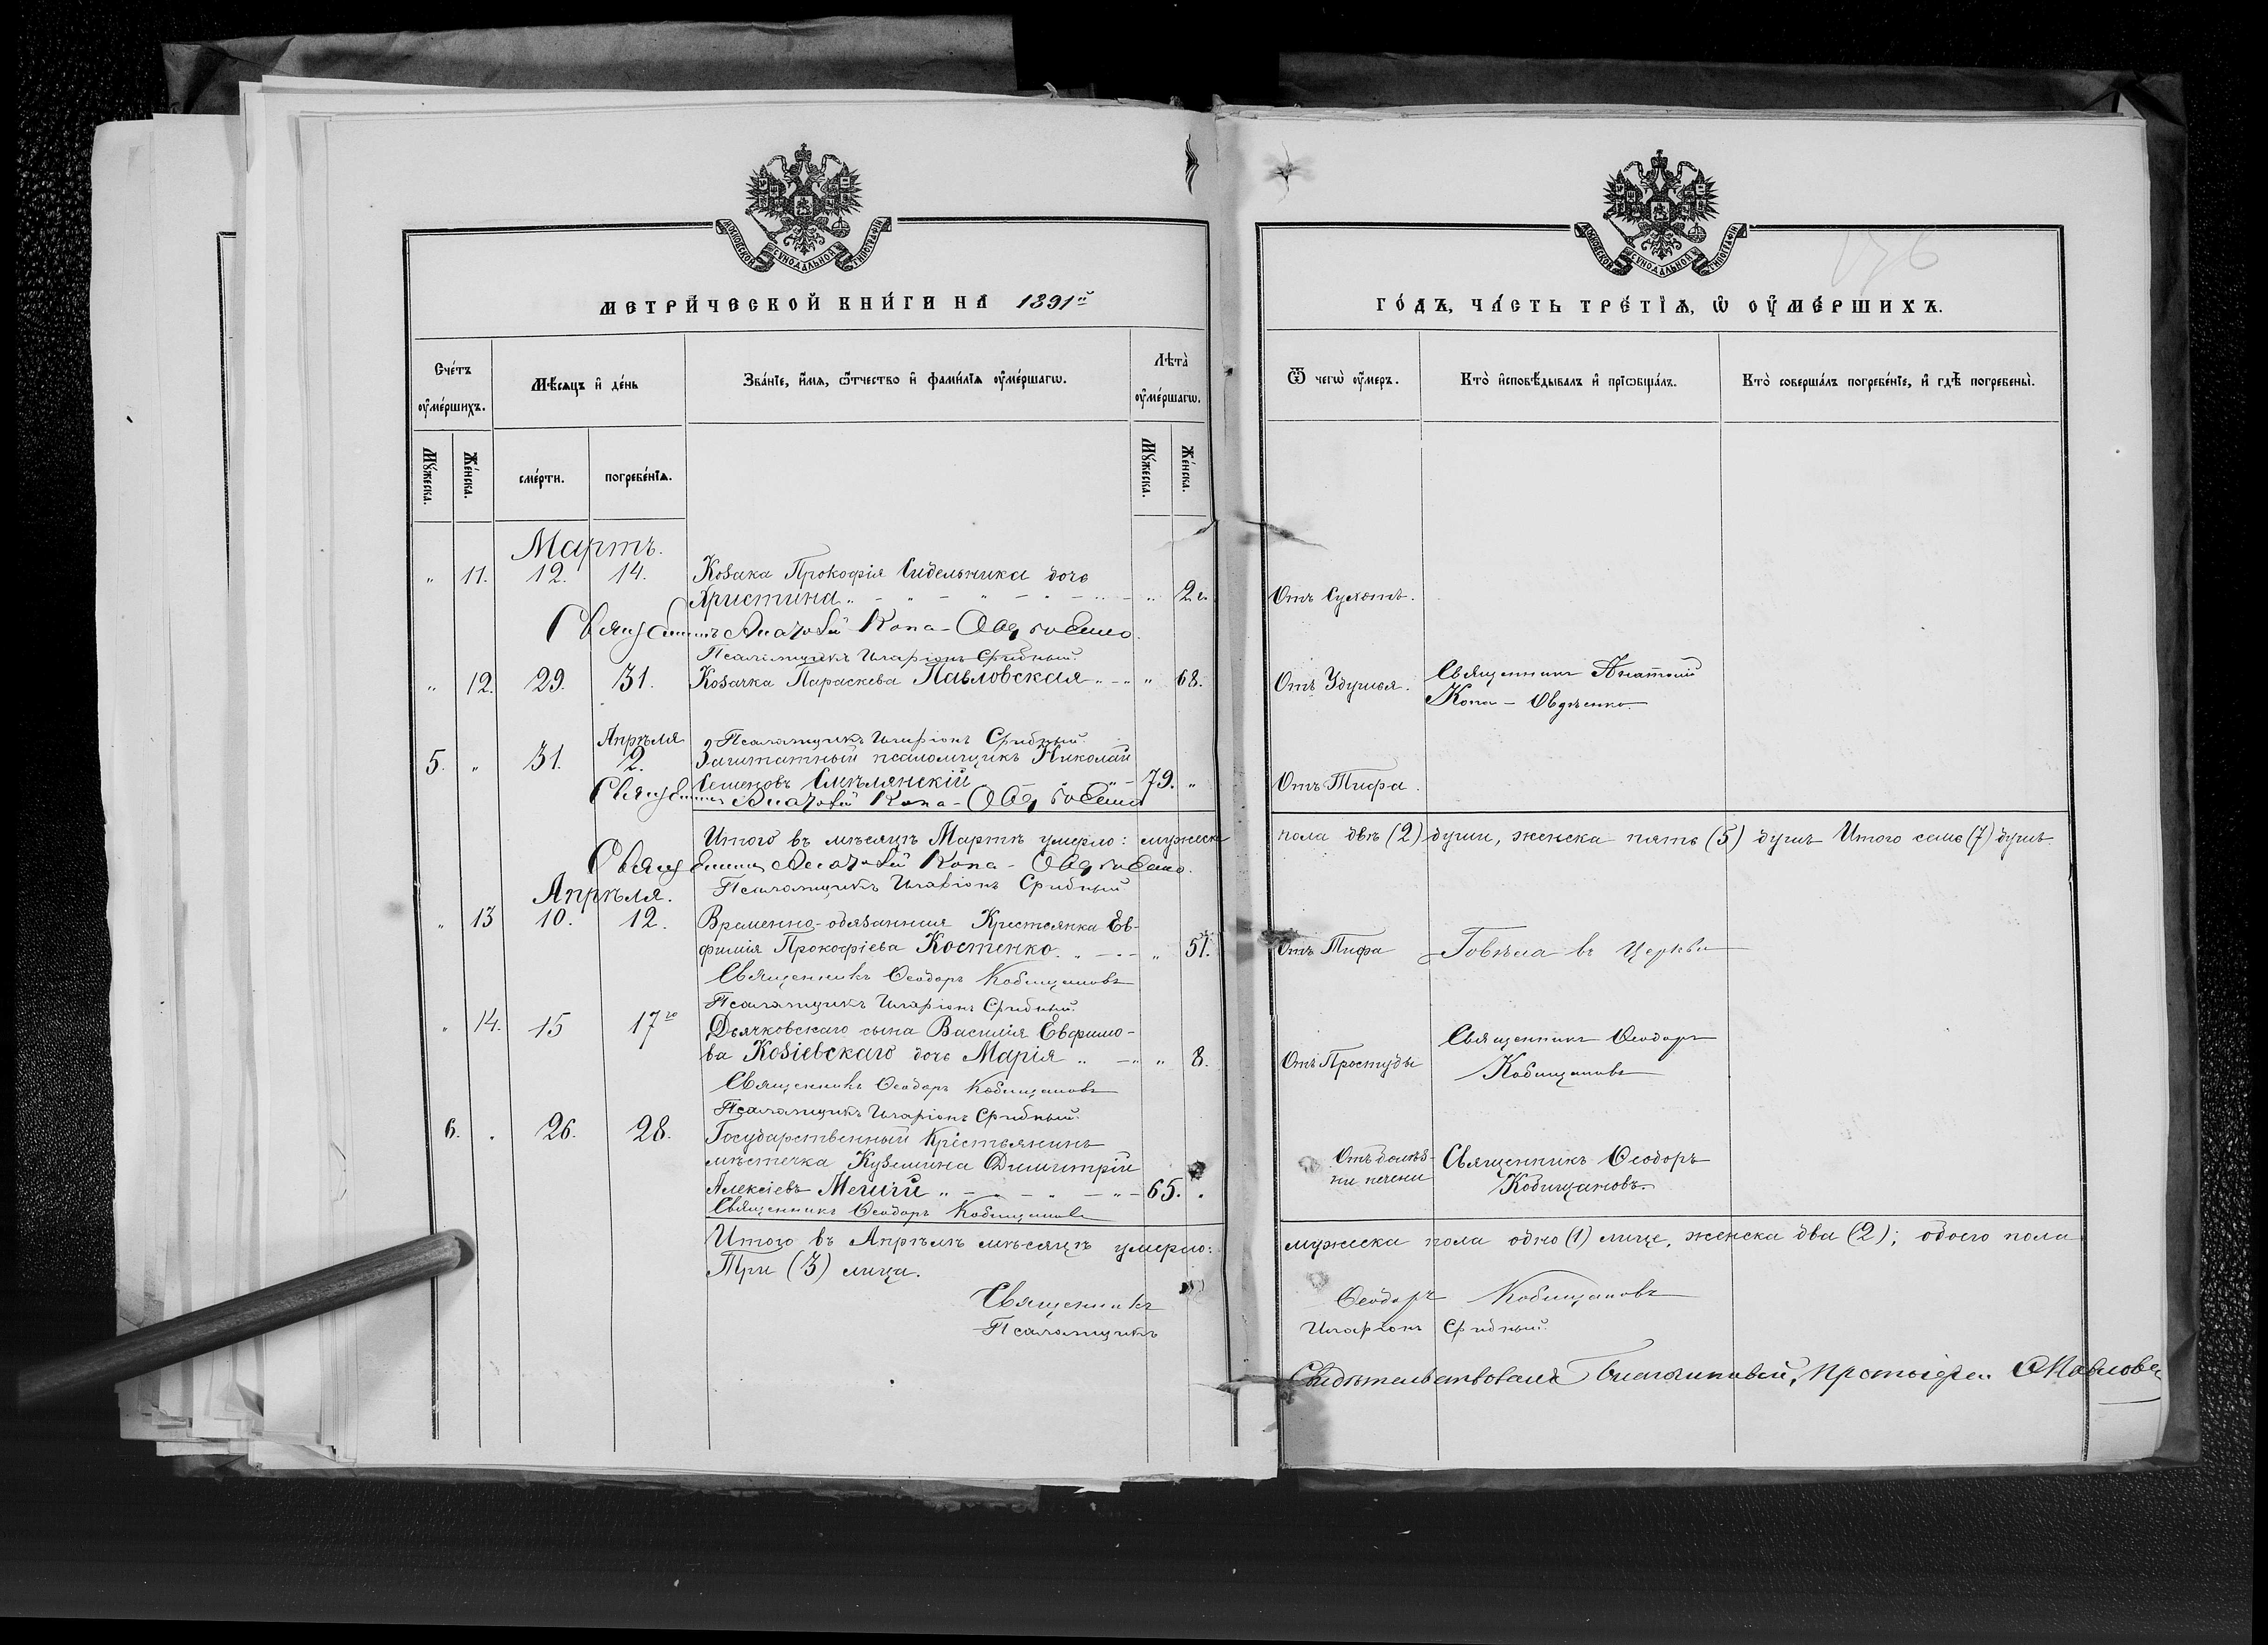 МОСКОВСКОЙ СѴНОДАЛЬНОЙ ТИПОГРАФІИ
МЕТРИ́ЧЕСКОЙ КНИ́ГИ НА 1891й
Сче́тъ
оу҆ме́ршихъ.
Мꙋ́жеска.
Же́нска.
Мѣ́сяцъ и҆ де́нь
сме́рти.
погребе́нїѧ.
Зва́нїе, и҆́мѧ, ѻ҆́тчество и҆ фами́лїѧ оу҆ме́ршагѡ.
Лѣта̀
оу҆ме́ршагѡ.
Мꙋ́жеска.
Же́нска.
Мартъ.
" 11. 12. 14. Козака Прокофія Сидельника дочь
Христина " 2 г.
Священникъ Анатолій Копа-Овдѣенко
Псаломщикъ Иларіонъ Срибный.
" 12. 29. 31. Козачка Параскева Павловская " 68.
Апрѣля
Псаломщикъ Иларіонъ Срибный
5. " 31. 2. Заштатный псаломщикъ Николай
Семеновъ Смѣлянскій 79. "
Священникъ Анатолій Копа-Овдѣенко
Итого въ мѣсяцѣ Мартѣ умерло: мужеска
Священникъ Анатолій Копа-Овдѣенко.
Псаломщикъ Иларіонъ Срибный
Апрѣля.
" 13 10. 12. Временно-обязанная Крестьянка Ев-
фимія Прокофіева Костенко. " 51.
Священникъ Ѳеодоръ Кобищановъ
Псаломщикъ Иларіонъ Срибный.
" 14. 15 17го Дьячковскаго сына Василія Евфимо-
ва Козіевскаго дочь Марія " 8.
Священникъ Ѳеодоръ Кобищановъ
Псаломщикъ Иларіонъ Срибный
6. . 26. 28. Государственный Крестьянинъ
мѣстечка Куземина Димитрій
Алексіевъ 65. .
Священникъ Ѳеодоръ Кобищановъ
Итого въ Апрѣлѣ мѣсяцѣ умерло:
Три (3) лица.
Священникъ
Псаломщикъ
МОСКОВСКОЙ СѴНОДАЛЬНОЙ ТИПОГРАФІИ
ГО́ДЪ, ЧА́СТЬ ТРЕ́ТЇѦ, Ѡ҆ ОУ҆МЕ́РШИХЪ.
Ѿ чегѡ̀ оу҆́меръ.
Кто̀ и҆сповѣ́дывалъ и҆ прїѡбща́лъ.
Кто̀ соверша́лъ погребе́нїе, и҆ гдѣ̀ погребены̀.
Отъ Сухотъ.
Отъ Удушья. Священникъ Анатолій
Копа-Овдѣенко
Отъ Тифа.
пола двѣ (2) души, женска пять (5) душъ Итого семь (7) душъ
Отъ Тифа Говѣла въ Церкви
Отъ Простуды Священникъ Ѳеодоръ
Кобищановъ
Отъ болѣз-
ни печени Священникъ Ѳеодоръ
Кобищановъ.
мужеска пола одно (1) лице, женска два (2); обоего пола
Ѳеодоръ Кобищановъ
Иларіонъ Срибный.
Свидѣтельствовалъ Благочинный, Протоіерей